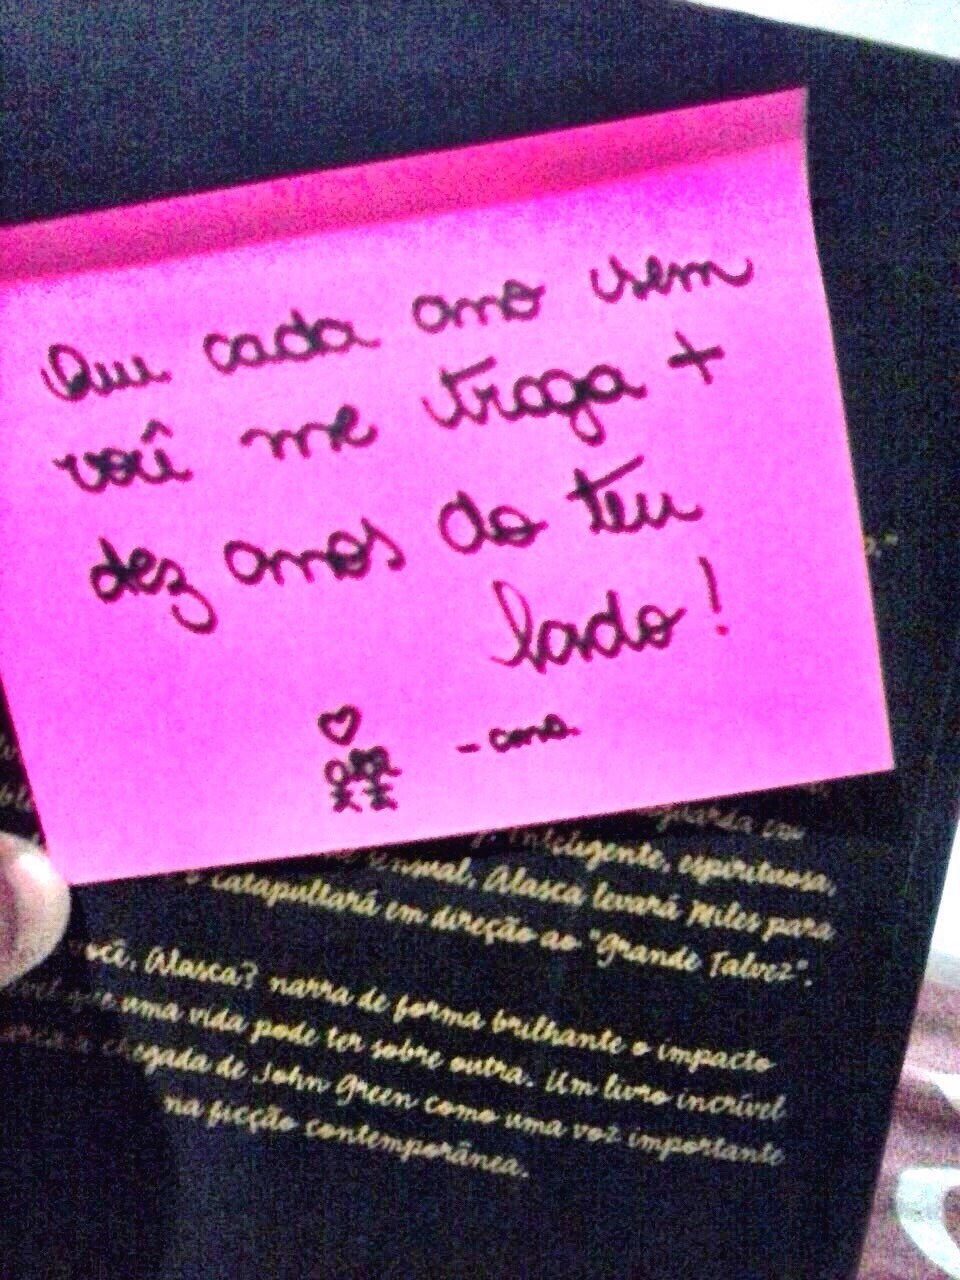 Que cada ano sem
você me traga +
dez anos do teu
lado!
guarda em
Inteligente, espirituosa,
sensual, Alasca levará Miles para
catapultará em direção ao "Grande Talvez".
você, Alasca? narra de forma brilhante o impacto
que uma vida pode ter sobre outra. Um livro incrível
chegada de John Green como uma voz importante
na ficção contemporânea.